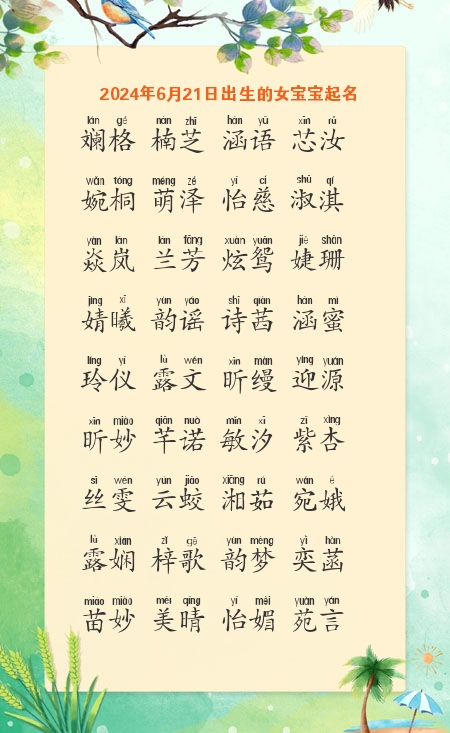 2024年6月21日出生的女宝宝起名
lán gé nán zhī hàn yǔ xīn rǔ
斓格 楠芝 涵语 芯汝
wǎn tóng méng zé yí cí shū qí
婉桐 萌泽 怡慈 淑淇
yàn lán lán fāng xuàn yuān jié shān
焱岚 兰芳 炫鸳 婕珊
jìng xī yùn yáo shī qiàn hàn mì
婧曦 韵谣 诗茜 涵蜜
líng yí lù wén xīn màn yíng yuán
玲仪 露文 昕缦 迎源
xīn miào qiān nuò mǐn xī zǐ xìng
昕妙 芊诺 敏汐 紫杏
sī wén yún jiāo xiāng rú wǎn é
丝雯 云蛟 湘茹 宛娥
lù xián zǐ gē yùn mèng yì hàn
露娴 梓歌 韵梦 奕菡
miáo miào měi qíng yí mèi yuàn yán
苗妙 美晴 怡媚 苑言